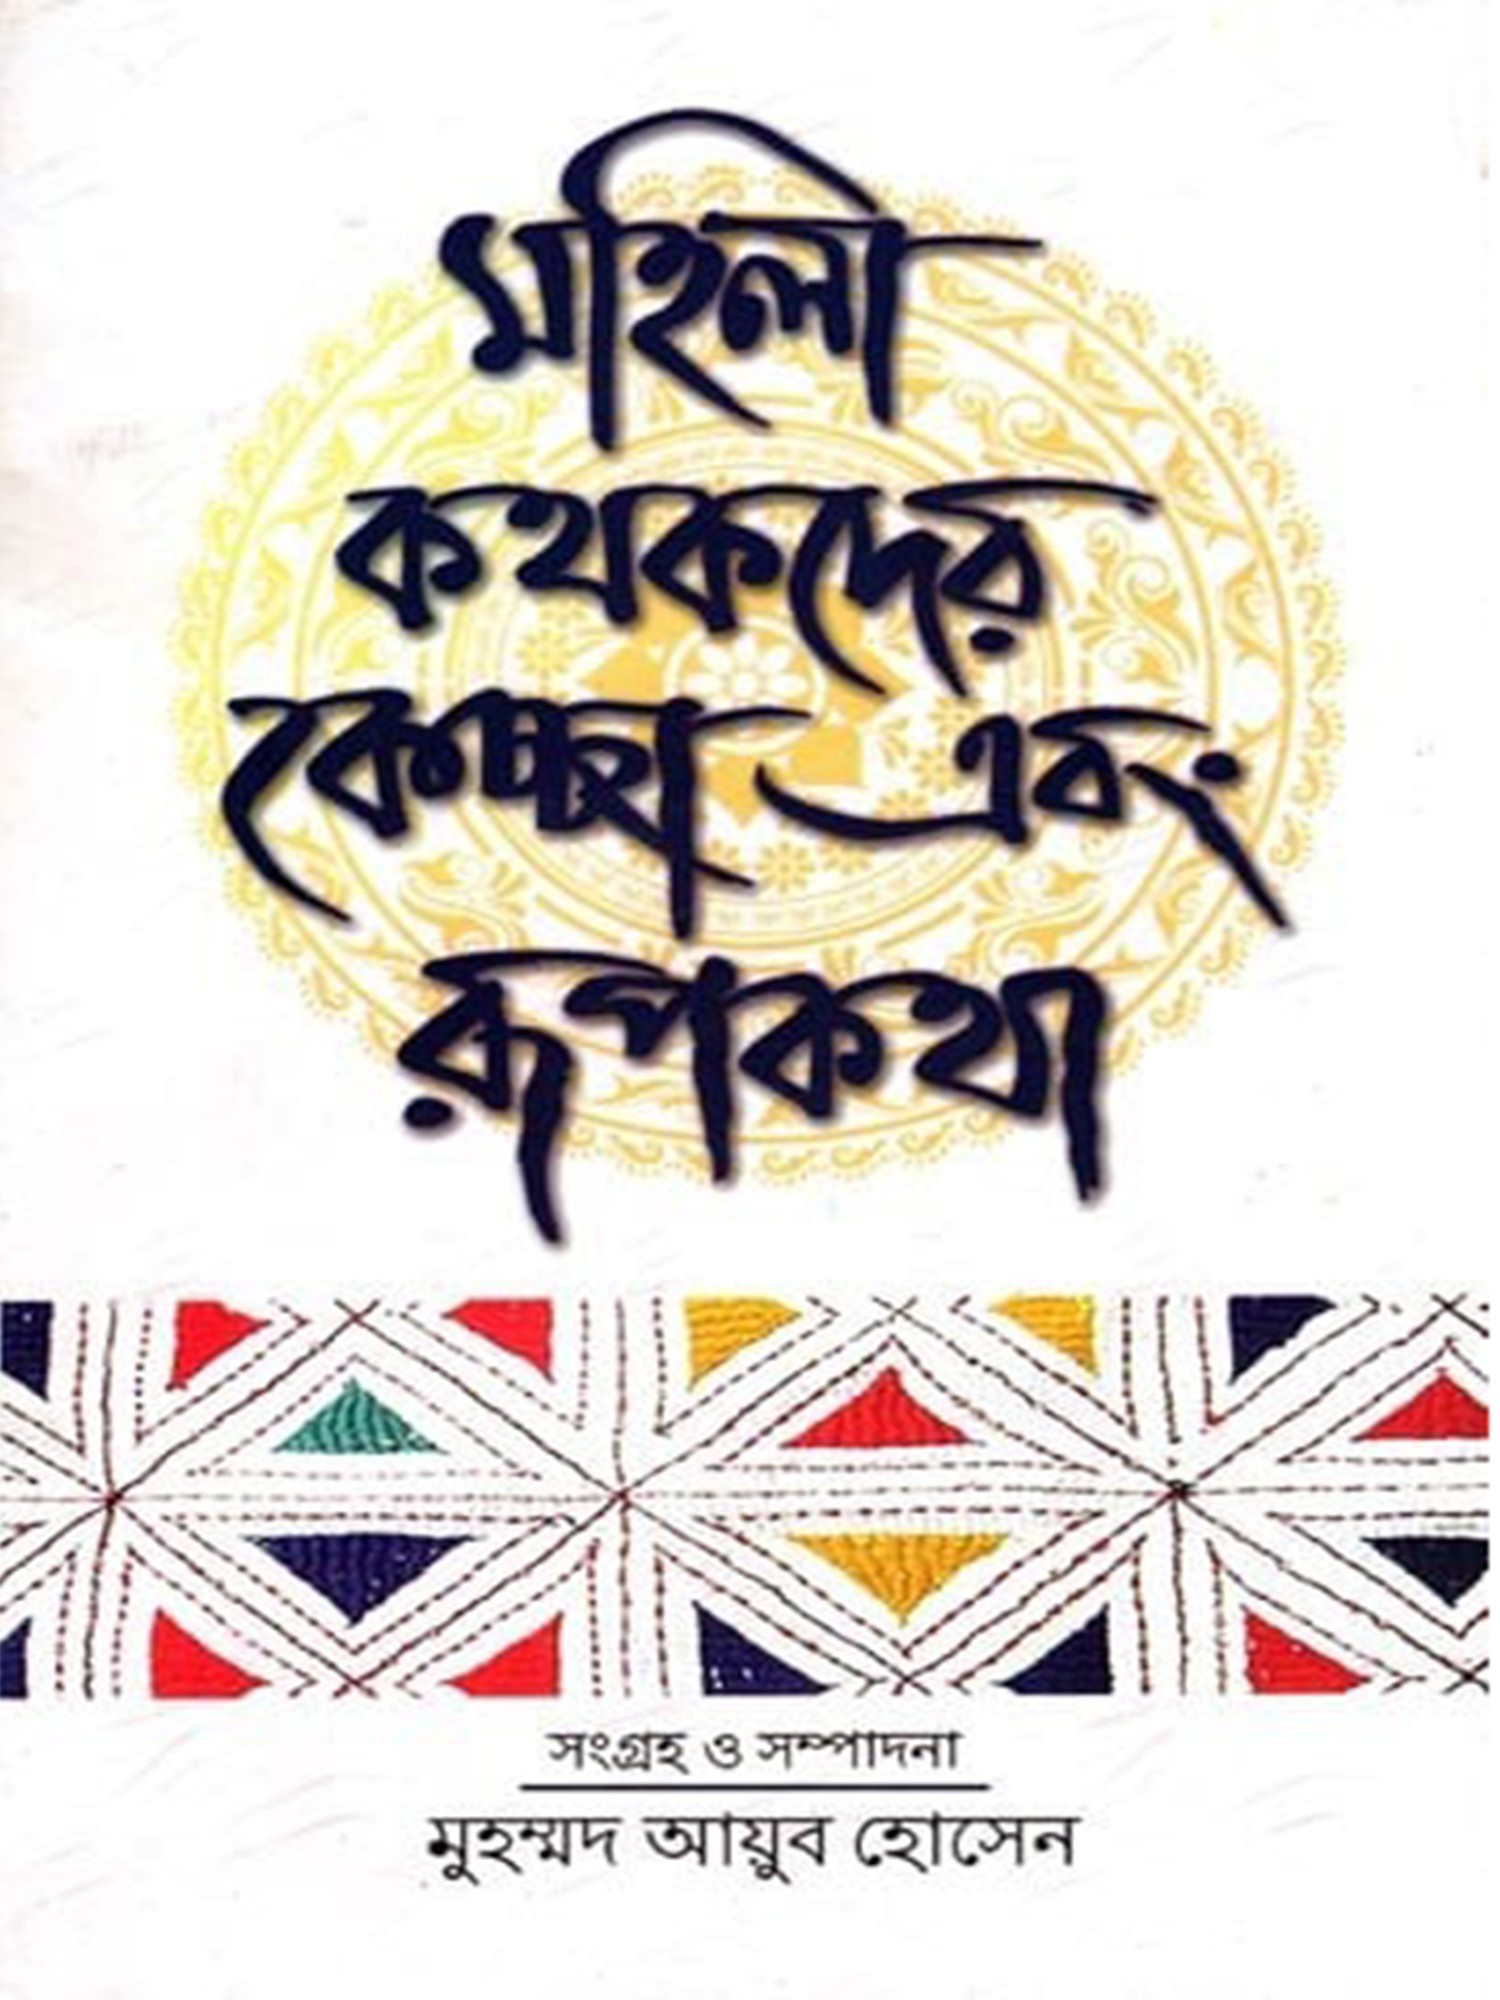 মহিলা
কথকদের
কেচ্ছা এবং
রূপকথা
সংগ্রহ ও সম্পাদনা
মুহম্মদ আয়ুব হোসেন